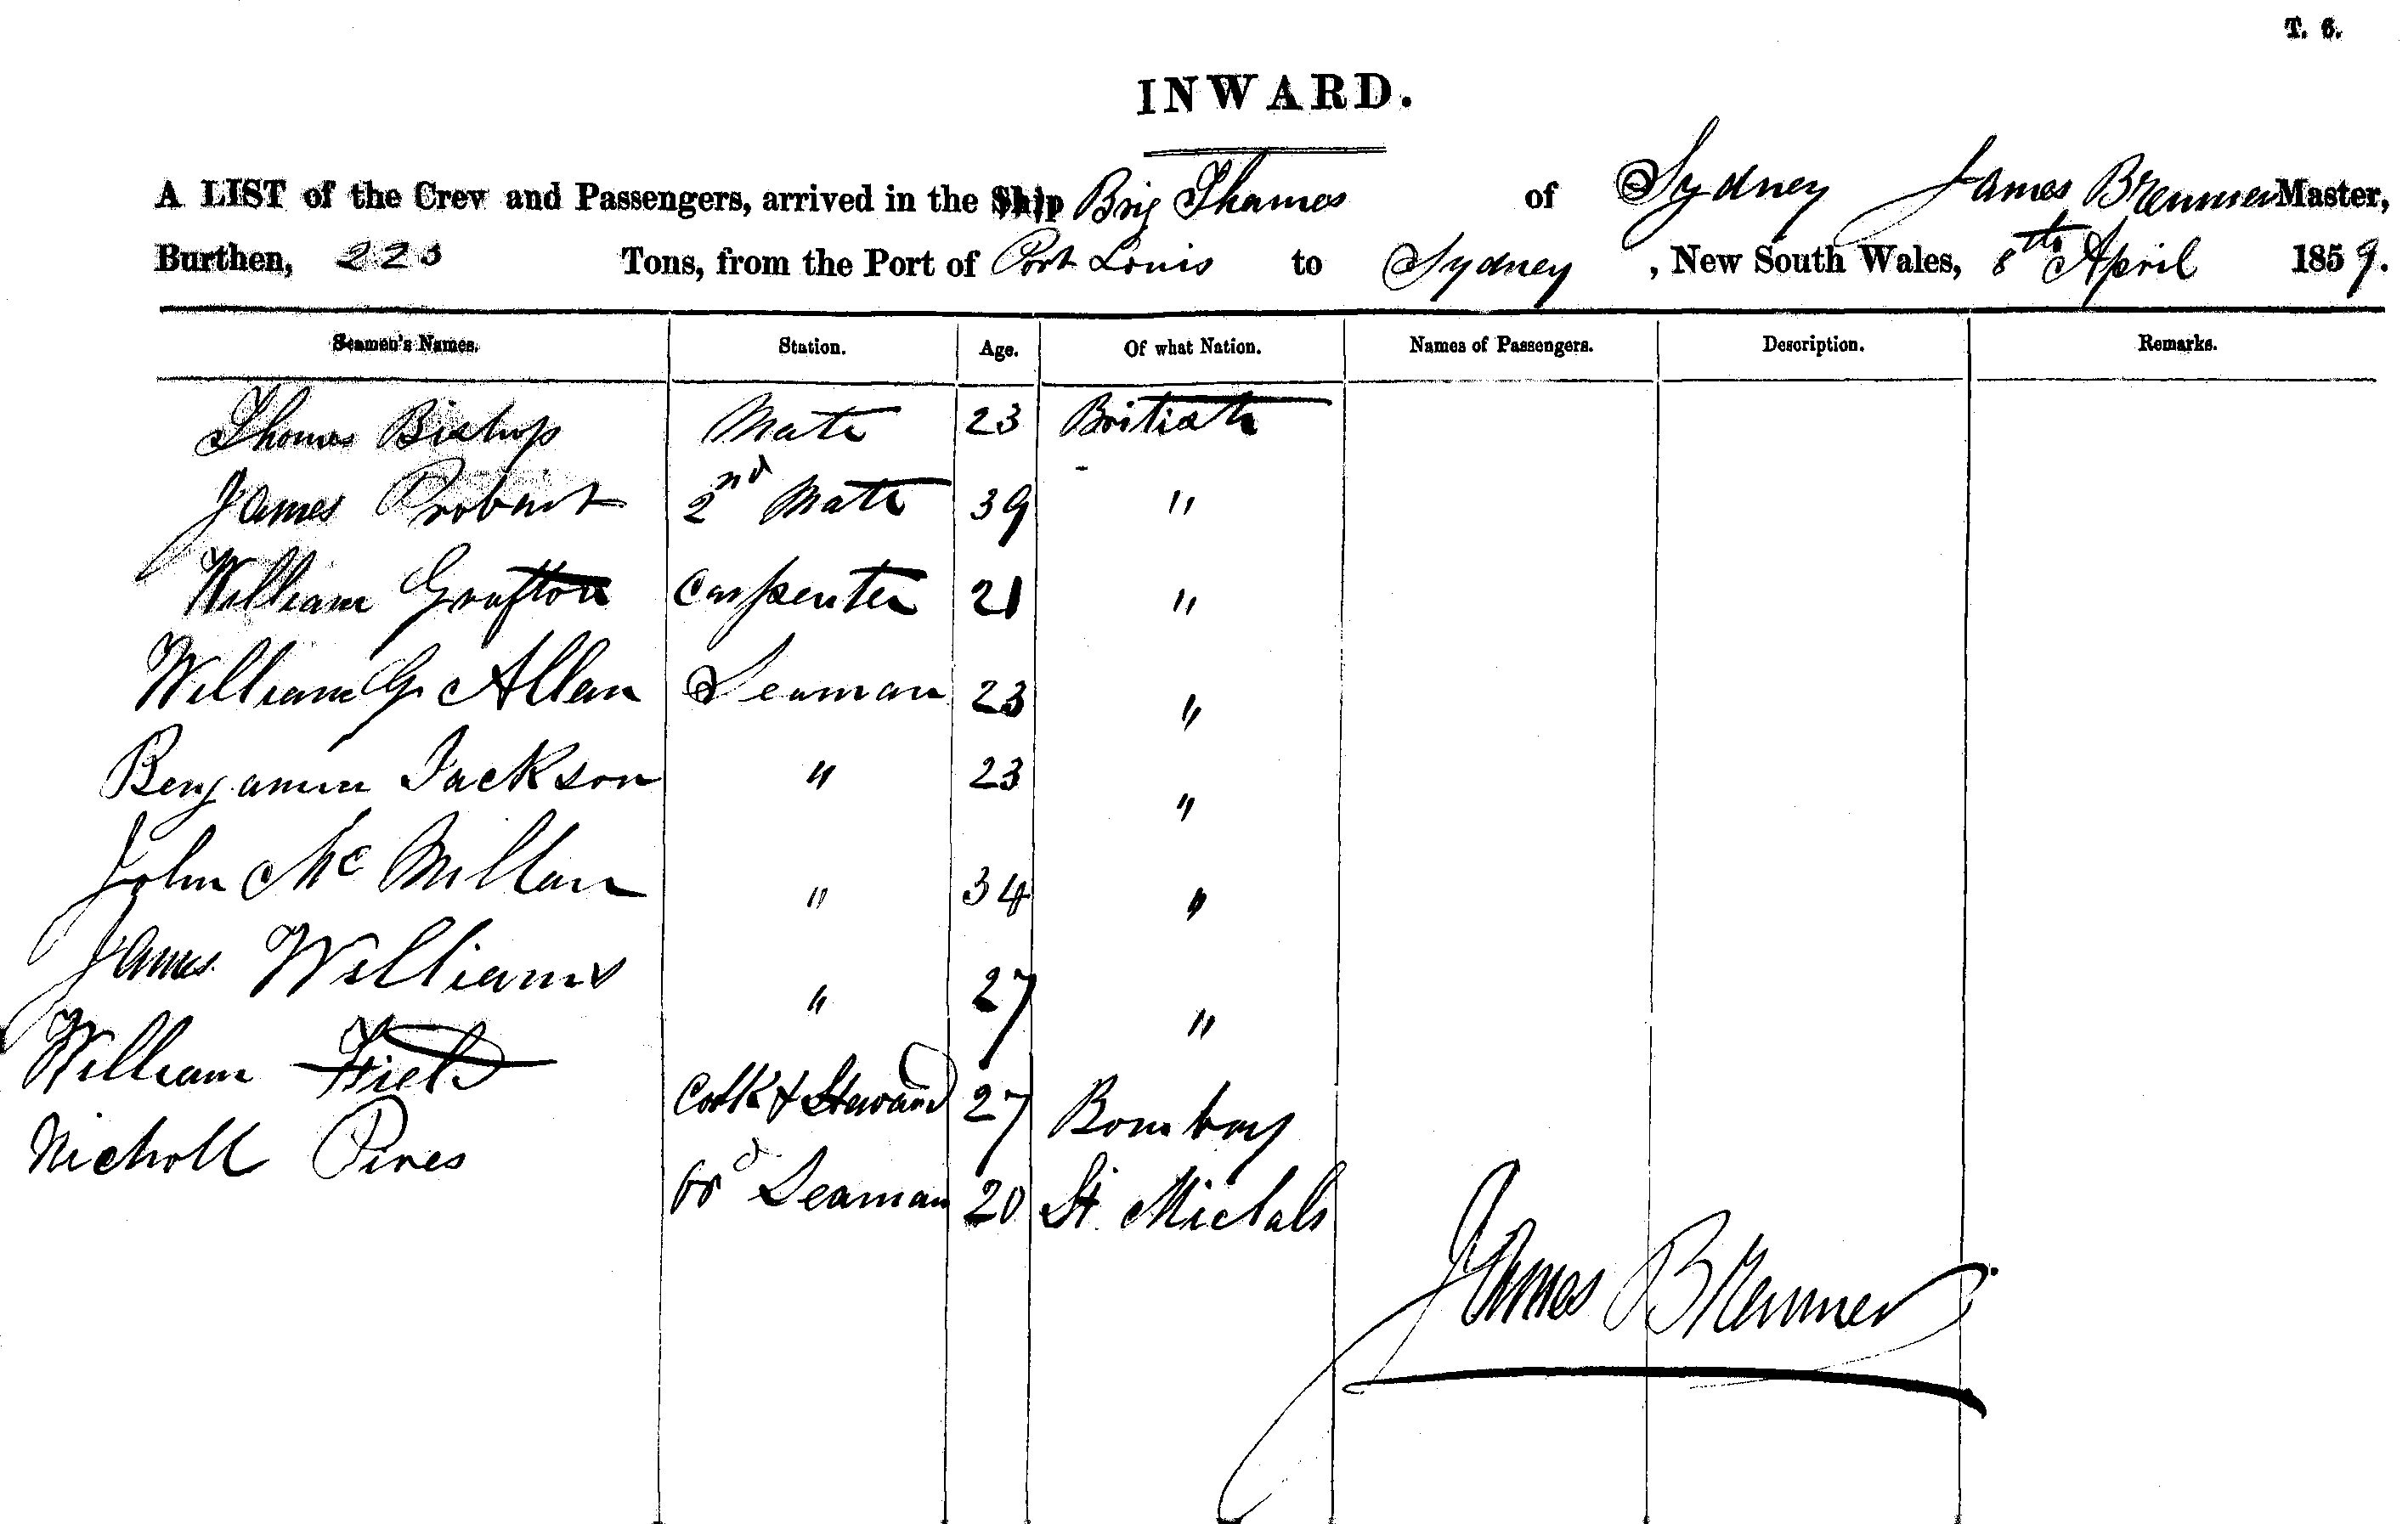 T. 6.
INWARD.
A LIST of the Crew and Passengers, arrived in the Ship Brig Thames of Sydney James Brenner Master,
Burthen, 223 Tons, from the Port of Port Louis to Sydney, New South Wales, 8th April 1859.
Seamen's Names. Station. Age. Of what Nation. Names of Passengers. Description. Remarks.
Thomas Bishop Mate 23 British
James Probert 2nd Mate 39 "
William Grafton Carpenter 21 "
William G. Allan Seaman 23 "
Benjamin Jackson " 23 "
John Mc Millan " 34 "
James Williams " 27 "
William Field Cook & Steward 27 Bombay
Nicholl Pires Seaman 20 St. Michals
James Brenner